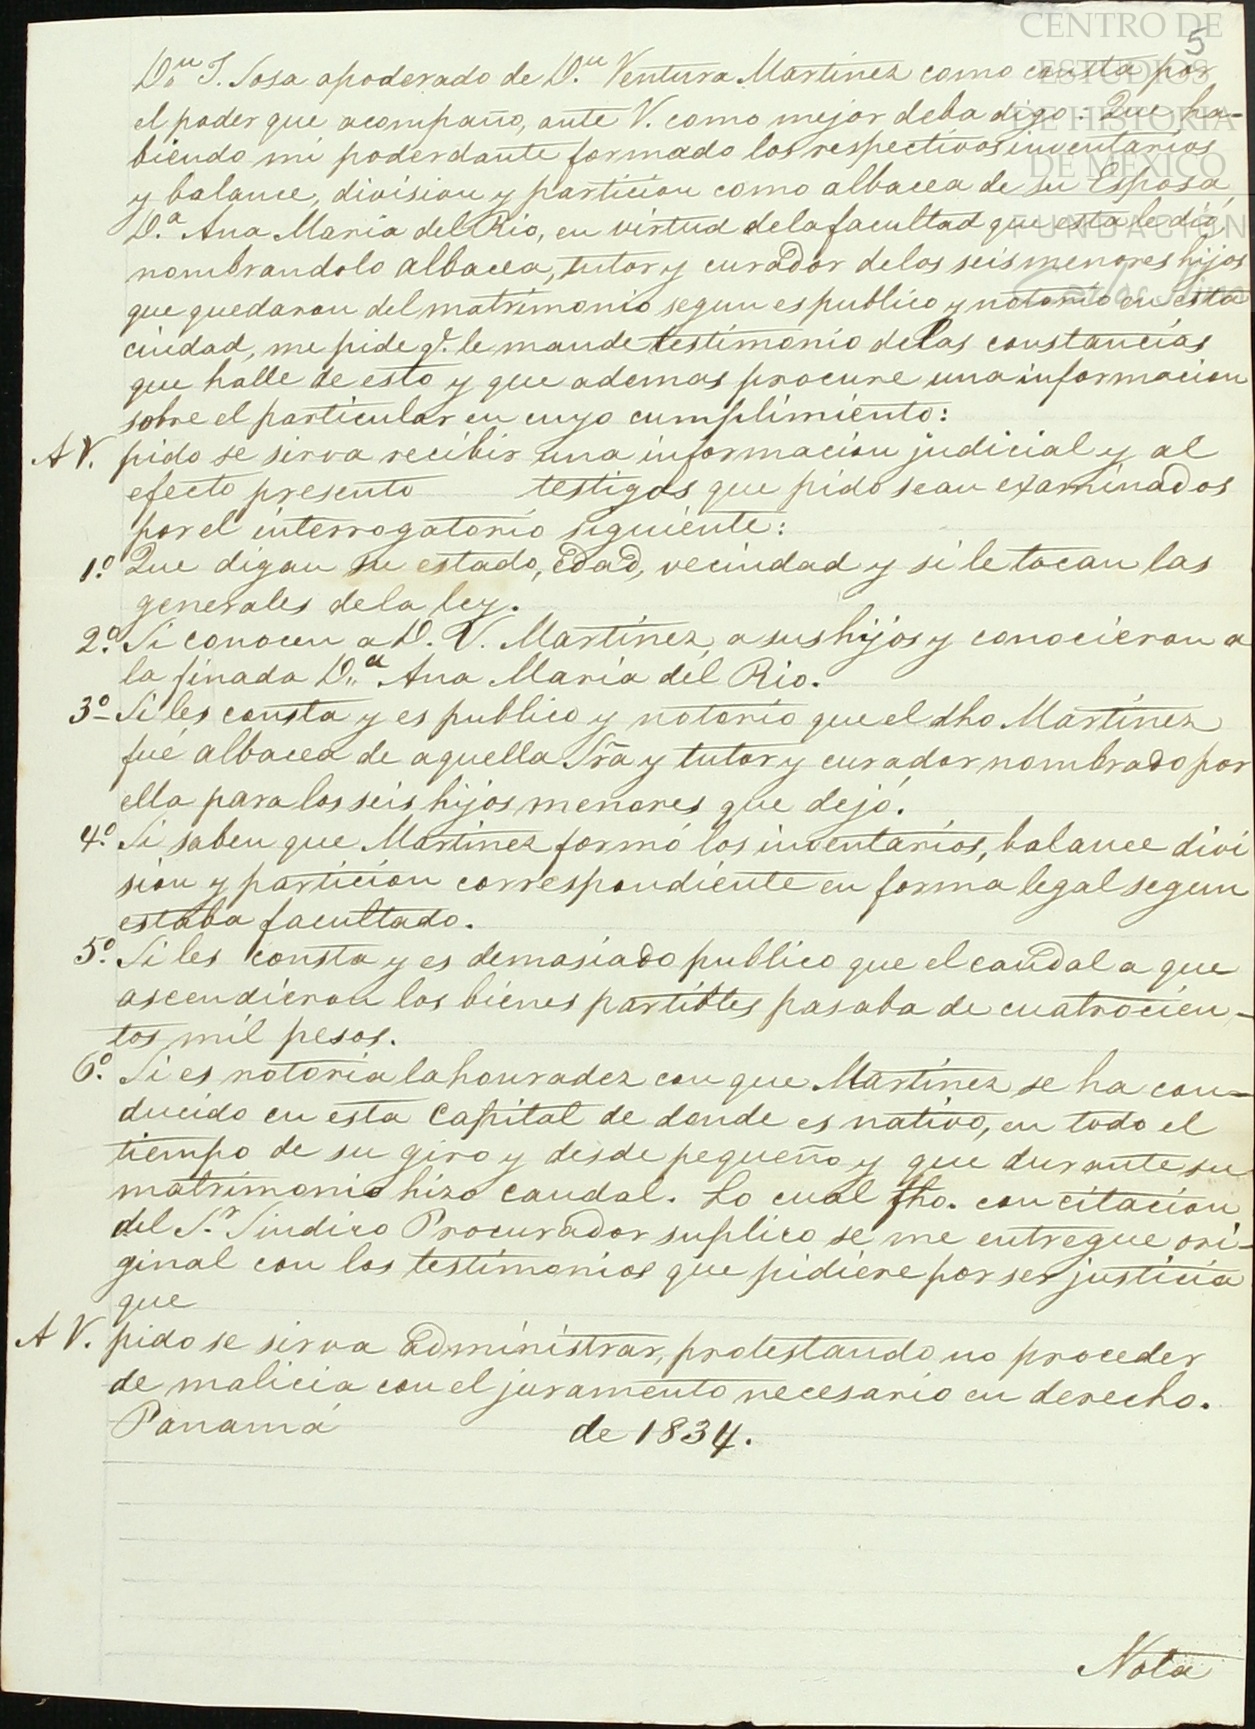 CENTRO DE
ESTUDIOS
DE HISTORIA
DE MÉXICO
FUNDACIÓN
5
Dn. T. Sosa apoderado de D.n Ventura Martinez como consta por
el poder que acompaño, ante V. como mejor deba digo: Que ha-
biendo mi poderdante formado los respectivos inventarios
y balance, division y particion como albacea de su Esposa
D.a Ana Maria del Rio, en virtud de la facultad que esta le dió
nombrandolo albacea, tutor y curador de los seis menores hijos
que quedaron del matrimonio segun es publico y notorio en esta
ciudad, me pide q.e le mande testimonio de las constancias
que halle de esto y que ademas procure una informacion
sobre el particular en cuyo cumplimiento:
A V. pido se sirva recibir una informacion judicial y al
efecto presento testigos que pido sean examinados
por el interrogatorio siguiente:
1.º Que digan su estado, edad, vecindad y si le tocan las
generales de la ley.
2.º Si conocen a D. V. Martinez, a sus hijos y conocieron a
la finada D.a Ana Maria del Rio.
3.º Si les consta y es publico y notorio que el dho Martinez
fué albacea de aquella Sra y tutor y curador nombrado por
ella para los seis hijos menores que dejó.
4.º Si saben que Martinez formó los inventarios, balance divi
sion y particion correspondiente en forma legal segun
estaba facultado.
5.º Si les consta y es demasiado publico que el caudal a que
ascendieron los bienes partibles pasaba de cuatrocien-
tos mil pesos.
6.º Si es notoria la honradez con que Martinez se ha con-
ducido en esta Capital de donde es nativo, en todo el
tiempo de su giro y desde pequeño y que durante su
matrimonio hizo caudal. Lo cual fho. con citacion
del S.r Sindico Procurador suplico se me entregue ori-
ginal con los testimonios que pidiere por ser justicia
que
A V. pido se sirva administrar, protestando no proceder
de malicia con el juramento necesario en derecho.
Panamá de 1834.
Nota